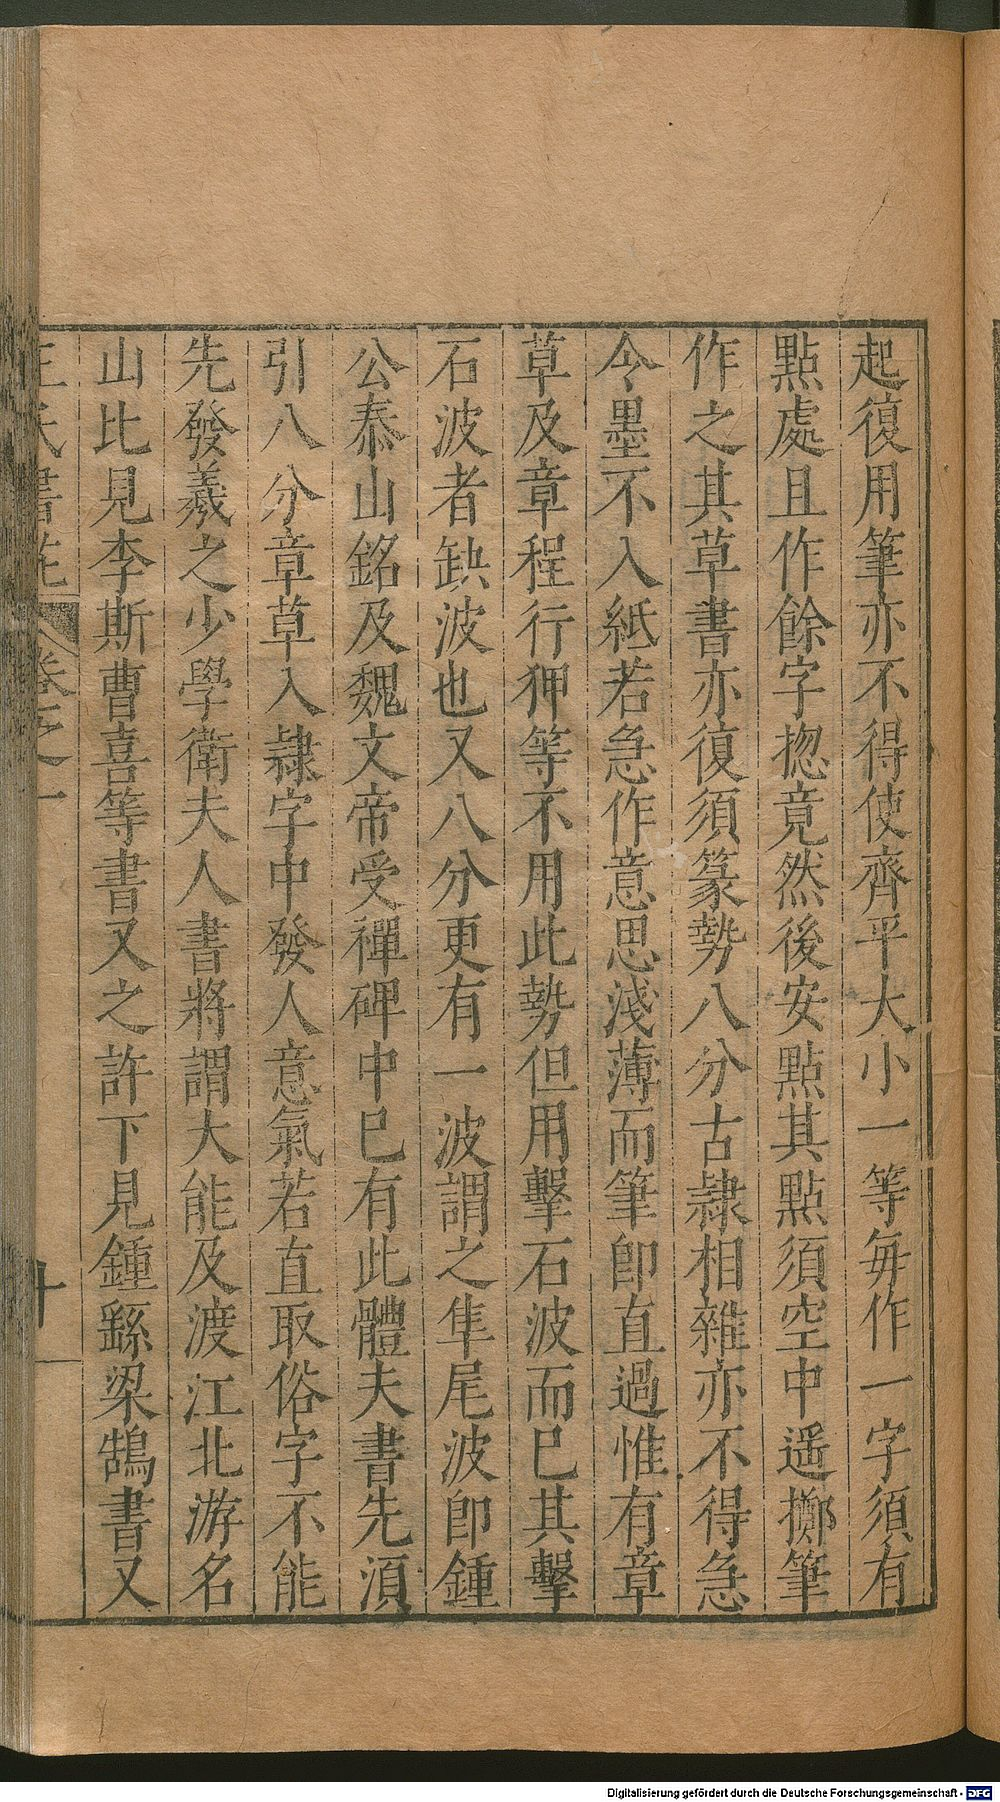 起復用筆亦不得使齊平大小一等毎作一字須有
點處且作餘字揔竟然後安點其點須空中遥擲筆
作之其草書亦復須篆勢八分古隸相雜亦不得急
令墨不入紙若急作意思淺薄而筆卽直過惟有章
草及章程行狎等不用此勢但用擊石波而已其擊
石波者缺波也又八分更有一波謂之隼尾波卽鍾
公泰山銘及魏文帝受禪碑中已有此體夫書先湏
引八分章草入隸字中發人意氣若直取俗字不能
先發羲之少學衛夫人書將謂大能及渡江北游名
山比見李斯曹喜等書又之許下見鍾繇梁鵠書又
王氏書苑 卷之一 十
Digitalisierung gefördert durch die Deutsche Forschungsgemeinschaft - DFG